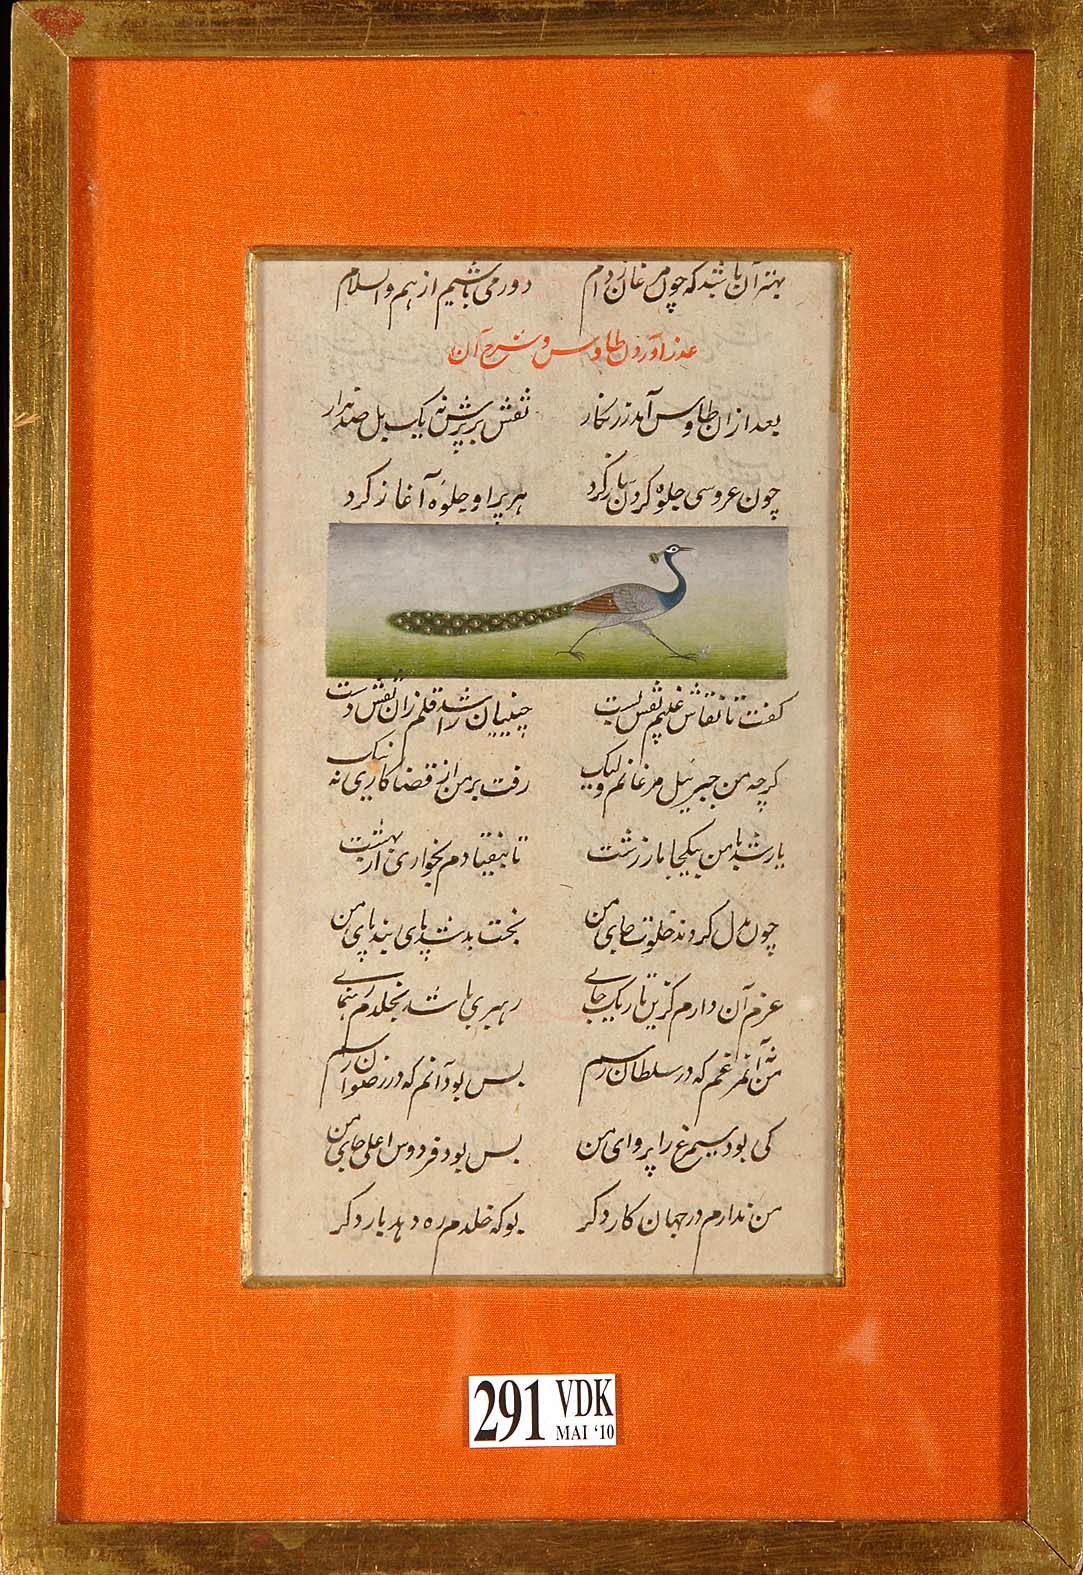 بهتر آن باشد که چون مرغان ز دام دور می باشیم از هم والسلام
عذر آوردن طاوس و شرح آن
بعد ازان طاوس آمد زرنگار نقش پرش نه یک بل صد هزار
چون عروسی جلوه کردن ساز کرد هر پر او جلوه آغاز کرد
گفت تا نقاش غیبم نقش بست چینیان را شد قلم زان نقش دست
گرچه من جبرئیل مرغانم ولیک رفت بر من از قضا کاری نه نیک
یار شد با من بیکجا مار زشت تا بیفتادم بخواری از بهشت
چون بدل کردند خلوت جای من تخت بند پای شد پای من
عزم آن دارم کزین تاریک جای رهبری باشد بخلدم رهنمای
من نه آن مرغم که در سلطان رسم بس بود آنم که در رضوان رسم
کی بود سیمرغ را پروای من بس بود فردوس اعلی جای من
من ندارم در جهان کار دگر بو که خلدم ره دهد بار دگر
291 VDK
MAI '10